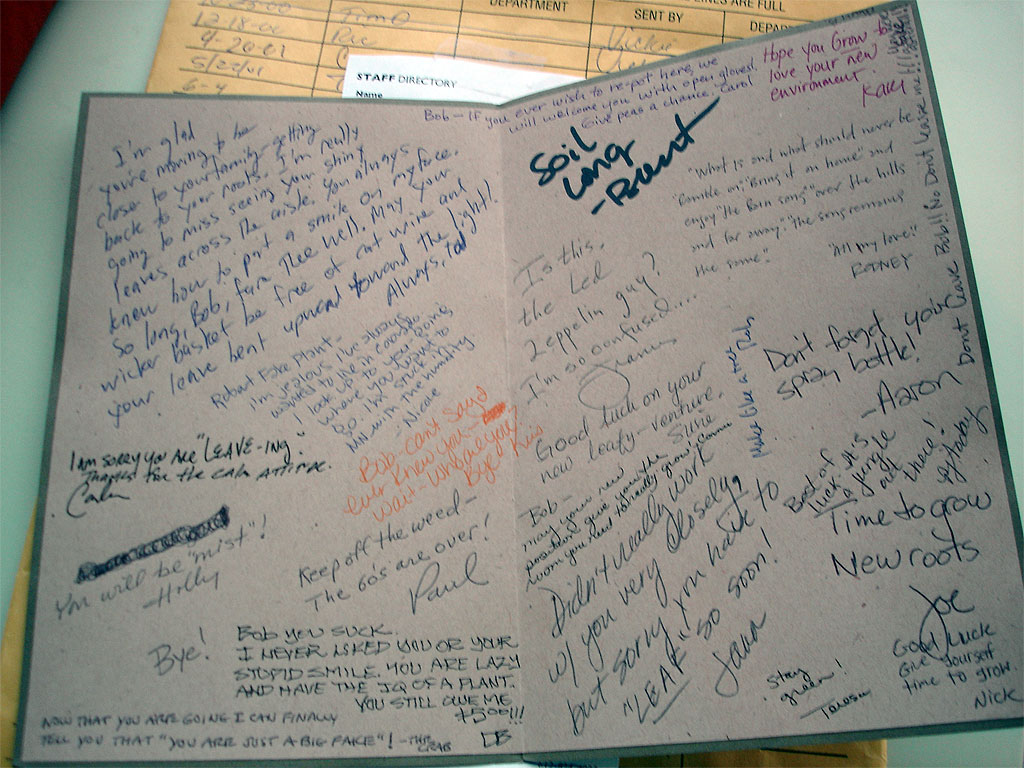 DEPARTMENT
SENT BY
LINES ARE FULL
12-18-00
Ric
Vickie
4-20-01
5/22/01
6-4
STAFF DIRECTORY
Name
I'm glad
you're moving to be
close to your family-getting
back to your roots. I'm really
going to miss seeing your shiny
leaves across the aisle. You always
knew how to put a smile on my face.
So long, Bob, fare thee well. May your
wicker basket be free of cat urine and
your leaves bent upward toward the light!
Always,
Robert Fake Plant-
I'm jealous. I've always
wanted to
I look up to you. Going
where you want to
go. I'm stuck in
MN with the humidity
-Nicole
I am sorry you are "LEAVE-ing.
Thanks for the calm attitude.
Bob-can't say I
ever knew you-
wait-who are you?
Bye Kris
You will be "mist"!
-Holly
Keep off the weed-
The 60's are over!
Paul
Bye!
BOB YOU SUCK.
I NEVER LIKED YOU OR YOUR
STUPID SMILE. YOU ARE LAZY
AND HAVE THE IQ OF A PLANT.
YOU STILL OWE ME
$5.00!!!
NOW THAT YOU ARE GOING I CAN FINALLY
TELL YOU THAT "YOU ARE JUST A BIG FAKE"! -THE
CRAB
Bob-If you ever wish to re-pot here, we
will welcome you with open gloves.
Give peas a chance. Carol
Hope you Grow to
love your new
environment.
Kari
Soil
Long
-Brent
"What is and what should never be"
"Ramble on" "Bring it on home" and
enjoy "the Rain song" "over the hills
and far away." "the song remains
the same."
"All my love"
RODNEY
Dont Leave Bob!! No Dont Leave me!!!
Is this,
the Led
Zeppelin guy?
I'm so confused....
Good luck on your
new leafy-venture.
Susie
Make like a tree
Don't forget your
spray bottle!
-Aaron
Bob-
may your new window
position give you the
room you need to really grow!
Connie
Best of
luck-it's
a jungle
out
there!
Didn't really work
w/ you very closely,
but sorry you have to
"LEAF" so soon!
Jana
Time to grow
New roots
Joe
Stay
green!
Teresa
Good Luck
Give yourself
time to grow.
Nick